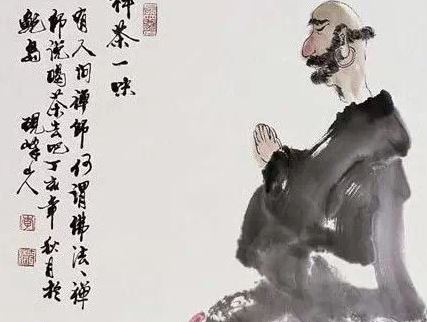 禅茶一味
有人问禅师何谓佛法、禅
师说喝茶去吧丁亥年秋月於
鲍岛 砚峰山人